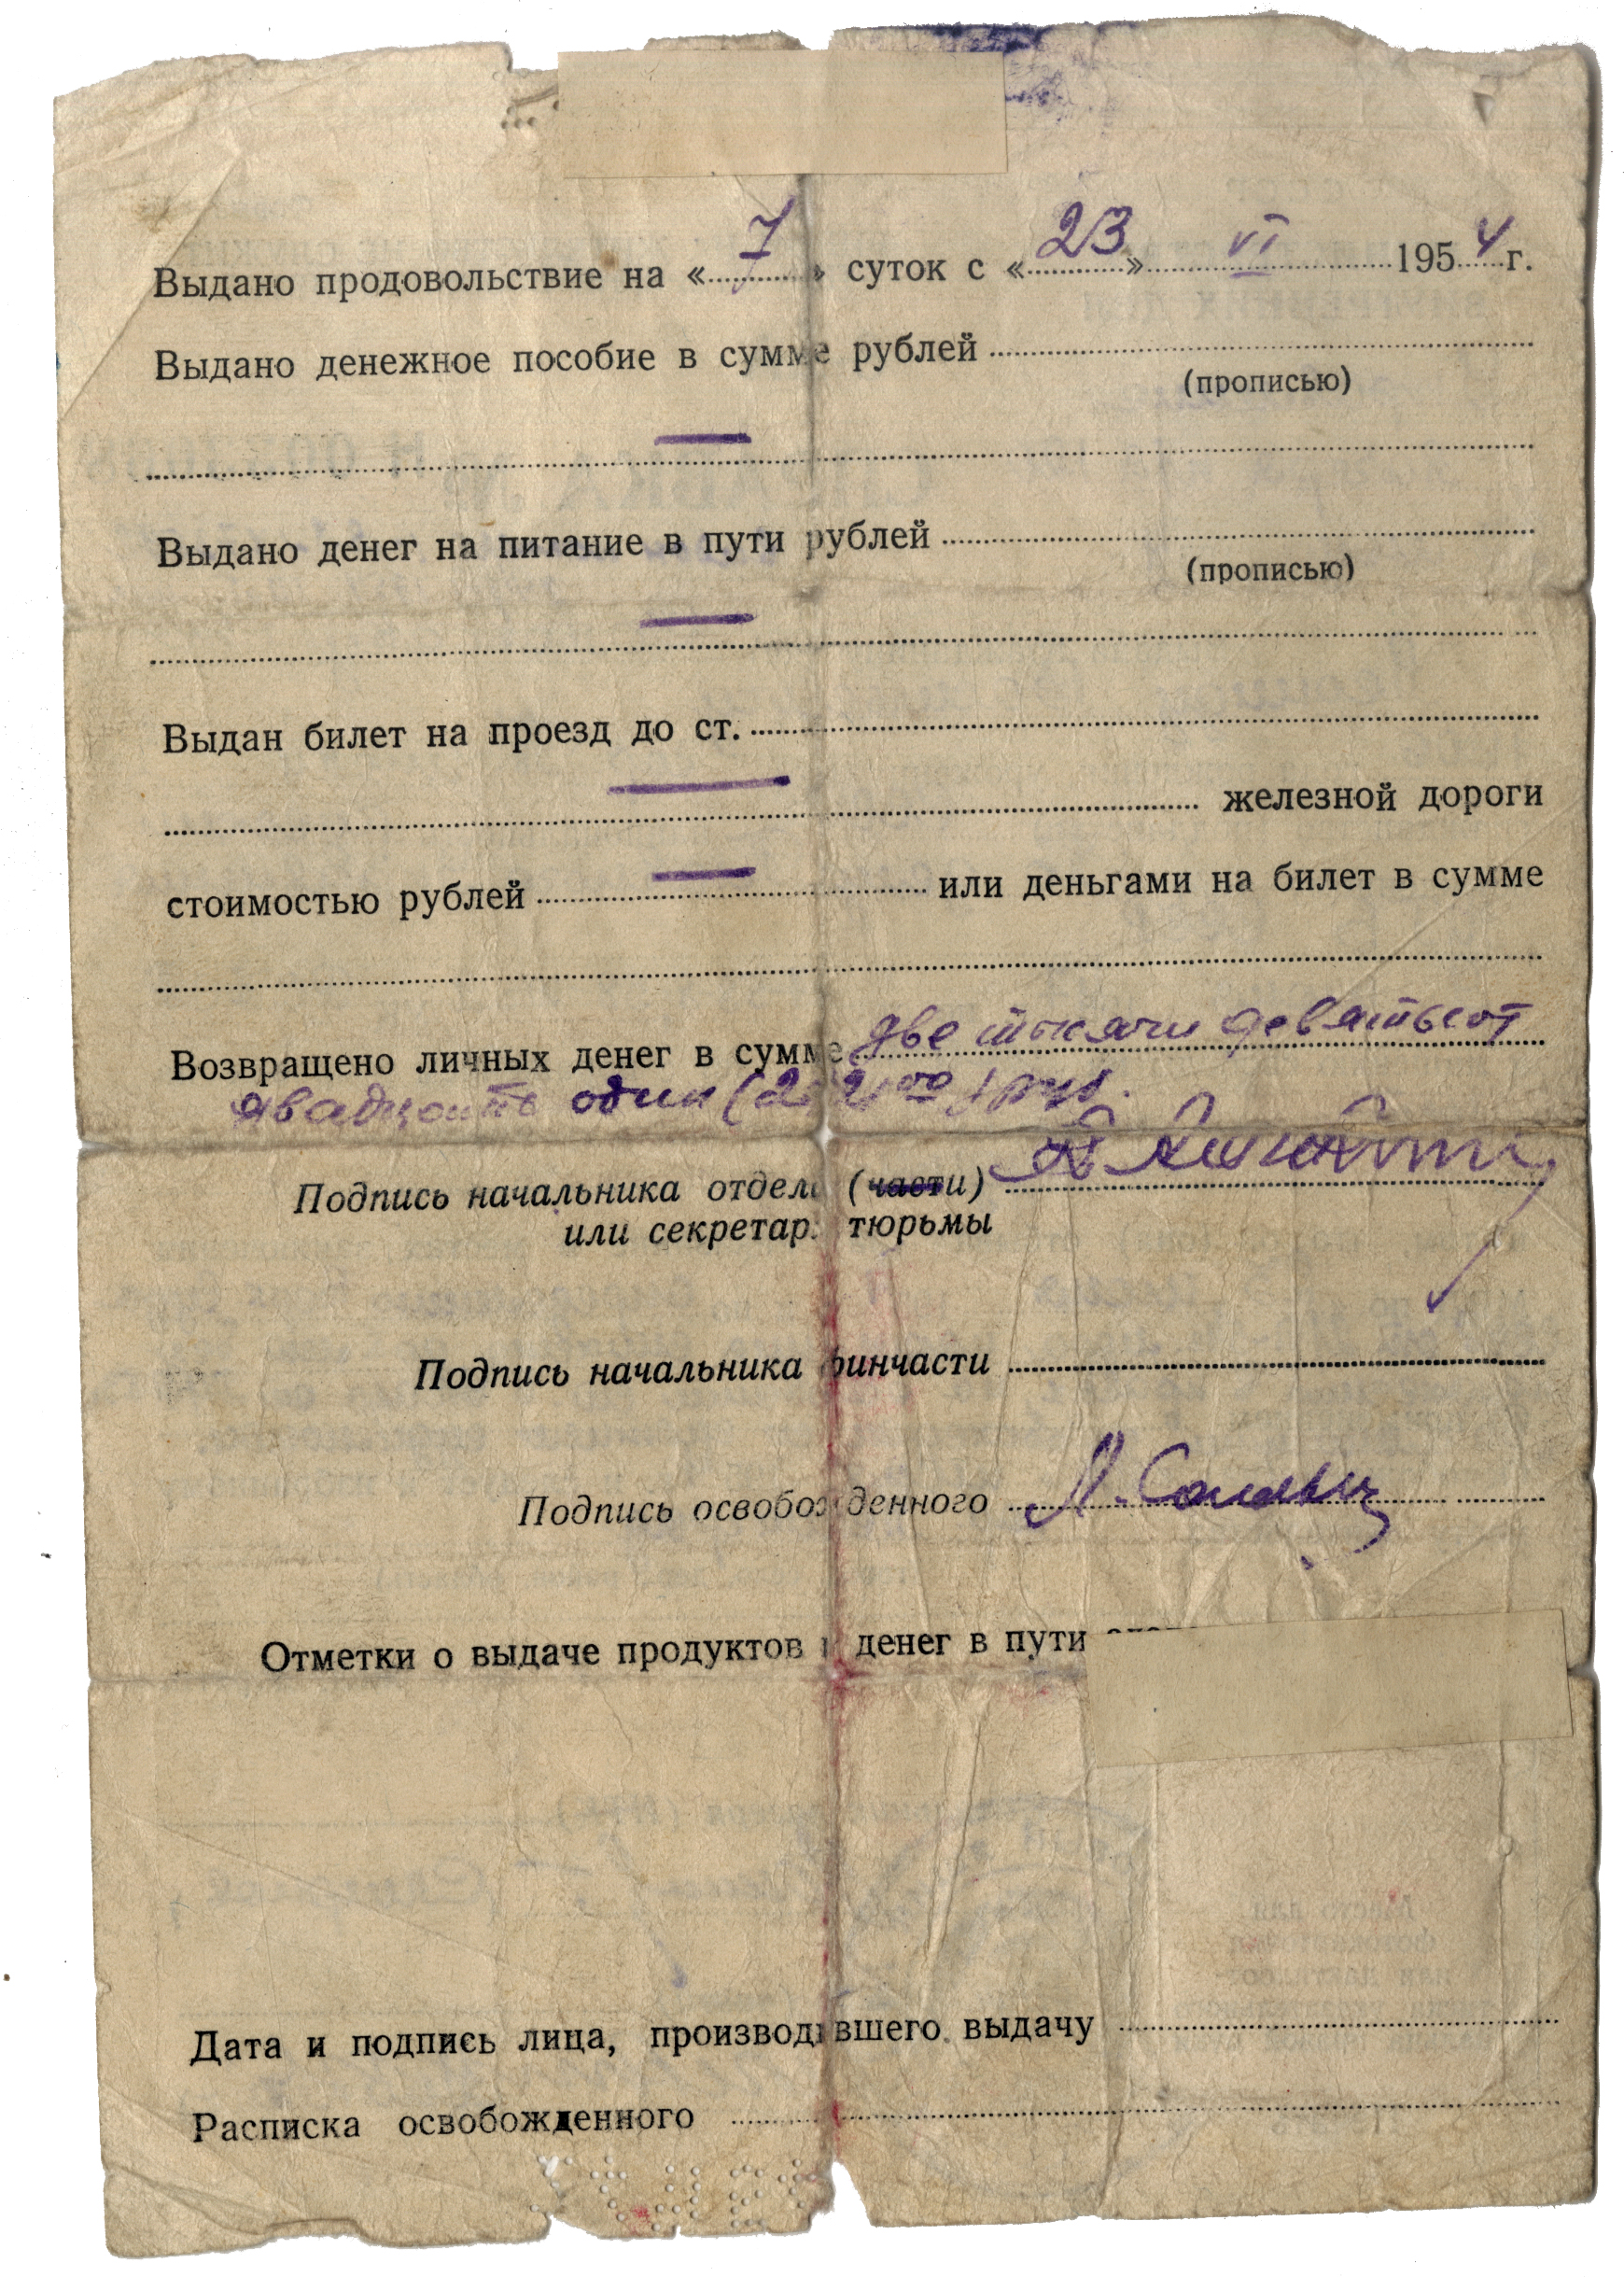 Выдано продовольствие на «7» суток с «23» VI 1954 г.
Выдано денежное пособие в сумме рублей
(прописью)
—
Выдано денег на питание в пути рублей
(прописью)
—
Выдан билет на проезд до ст.
— железной дороги
стоимостью рублей — или деньгами на билет в сумме
Возвращено личных денег в сумме две тысячи девятьсот
двадцать один (2921 00) руб.
Подпись начальника отдела (части)
или секретаря тюрьмы
Подпись начальника финчасти
Подпись освобожденного
Отметки о выдаче продуктов и денег в пути
Дата и подпись лица, производившего выдачу
Расписка освобожденного